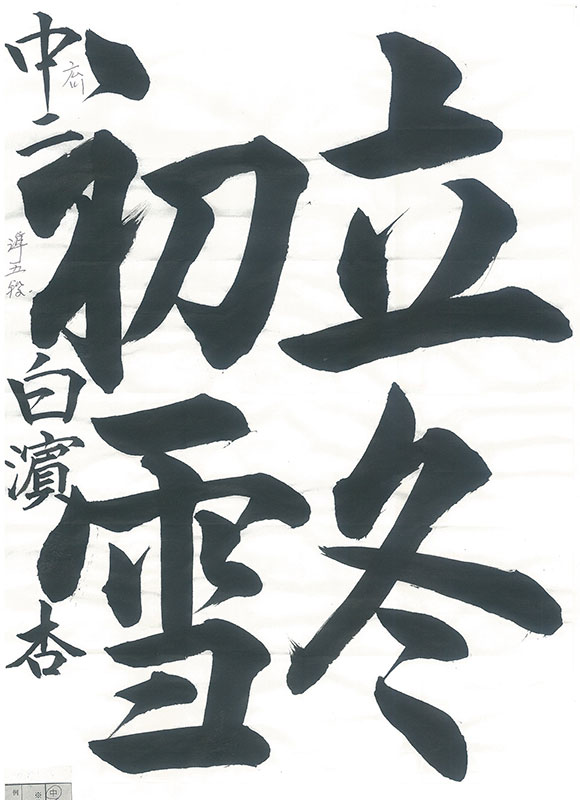 立冬
初雪
中二 白濱 杏
準五段
例 ※ 中